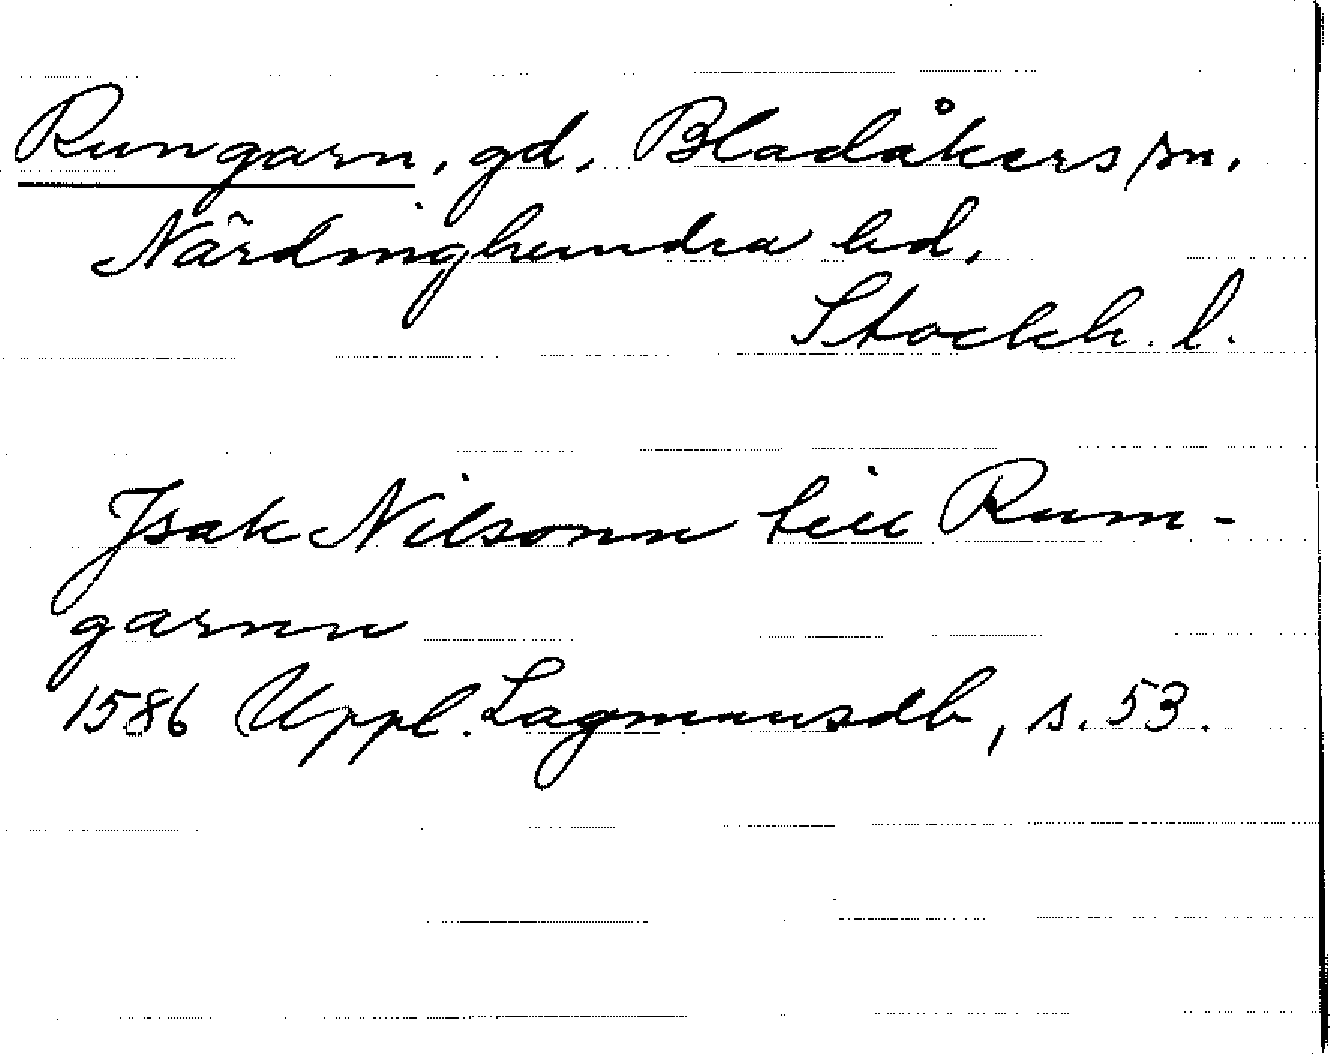 Rungarn, gd, Bladåkers sn,
Närdinghundra hd,
Stockh. l.
Jsak Nilsonn till Rum-
garnn
1586 Uppl. Lagmansdb, s. 53.